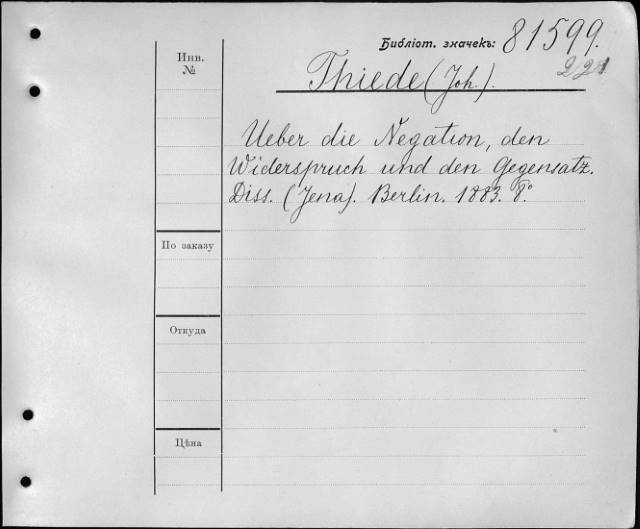 Библіот. значекъ: 81599.
221
Инв. №
Thiede (Joh.).
Ueber die Negation, den
Widerspruch und den Gegensatz.
Diss. (Jena). Berlin. 1883. 8°
По заказу
Откуда
Цѣна